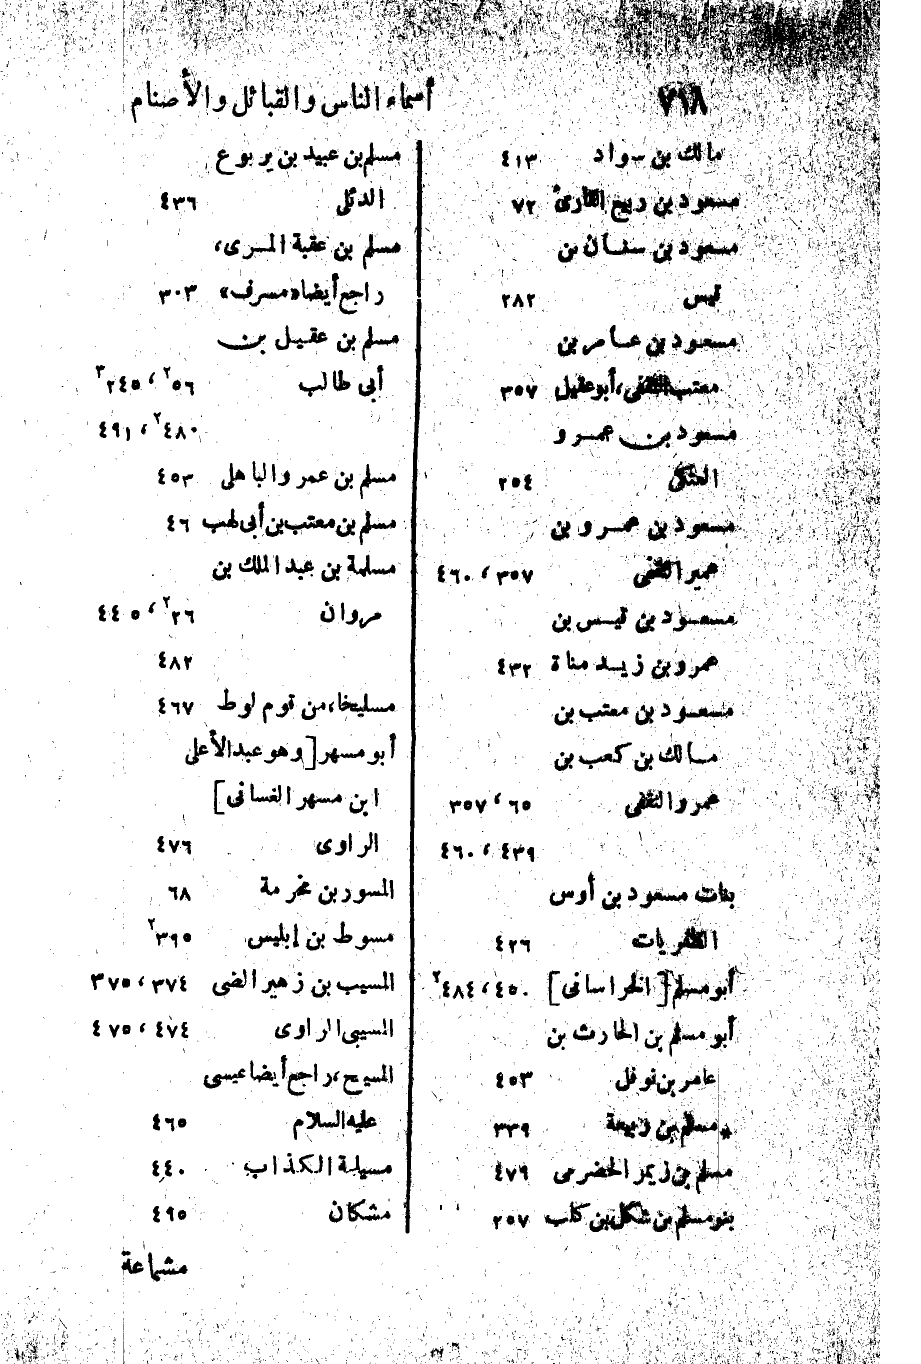 ٧١٨
أسماء الناس والقبائل والأصنام
مالك بن سواد ٤١٣
مسعود بن ربيع القارئ ٧٢
مسعود بن سنان بن
قيس ٢٨٢
مسعود بن عامر بن
معتب الثقفى، أبو عقيل ٣٥٧
مسعود بن عمرو
العتكى ٢٥٤
مسعود بن عمرو بن
عمير الثقفى ٣٥٧، ٤٦٠
مسعود بن قيس بن
عمرو بن زيد مناة ٤٣٢
مسعود بن معتب بن
مالك بن كعب بن
عمرو الثقفى ٦٥، ٣٥٧
٤٣٩، ٤٦٠
بنات مسعود بن أوس
الظفريات ٤٢٦
أبو مسلم [الخراسانى] ٤٥٠، ٤٨٤٢
أبو مسلم بن الحارث بن
عامر بن نوفل ٤٥٣
*مسلم بن ربيعة ٣٣٩
مسلم بن زيمر الحضرمى ٤٧٩
بنو مسلم بن شكل بن كلب ٢٥٧
مسلم بن عبيد بن يربوع
الدئلى ٤٣٦
مسلم بن عقبة المرى،
راجع أيضا «مسرف» ٣٠٣
مسلم بن عقيل بن
أبى طالب ٥٦٢، ٢٤٥٣
٤٨٠٢، ٤٩١
مسلم بن عمرو الباهلى ٤٥٣
مسلم بن معتب بن أبى لهب ٤٦
مسلمة بن عبد الملك بن
مروان ٢٦٢، ٤٤٥
٤٨٢
مسليخا، من قوم لوط ٤٦٧
أبو مسهر [وهو عبد الأعلى
ابن مسهر الغسانى]
الراوى ٤٧٦
المسور بن مخرمة ٦٨
مسوط بن إبليس ٣٩٥٢
المسيب بن زهير الضى ٣٧٤، ٣٧٥
المسيبى الراوى ٤٧٤، ٤٧٥
المسيح، راجع أيضا عيسى
عليه السلام ٤٦٥
مسيلمة الكذاب ٤٤٠
مشكان ٤٩٥
مشماعة